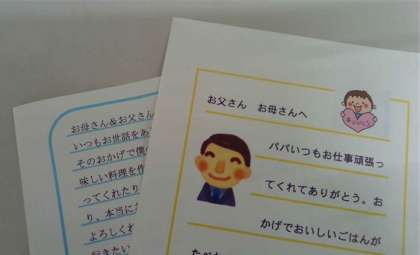 お母さん&お父さん
いつもお世話をあ
そのおかげで僕
味しい料理を作
ってくれたり
り、本当に
よろしくね
行きたい
お父さん　お母さんへ
パパいつもお仕事頑張っ
てくれてありがとう。お
かげでおいしいごはんが